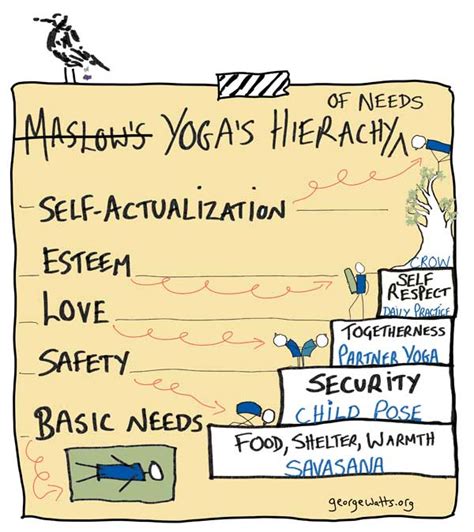 OF NEEDS
MASLOW'S YOGA'S HIERACHY
SELF-ACTUALIZATION
CROW
ESTEEM
SELF
RESPECT
DAILY PRACTICE
LOVE
TOGETHERNESS
PARTNER YOGA
SAFETY
SECURITY
CHILD POSE
BASIC NEEDS
FOOD, SHELTER, WARMTH
SAVASANA
georgewatts.org